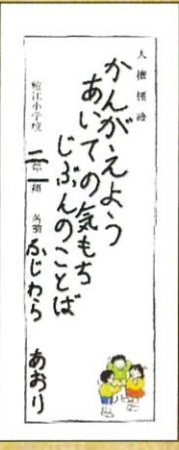 人権標語
かんがえよう
あいての気もち
じぶんのことば
鯰江小学校 二年一組 名前 ふじわら あおり